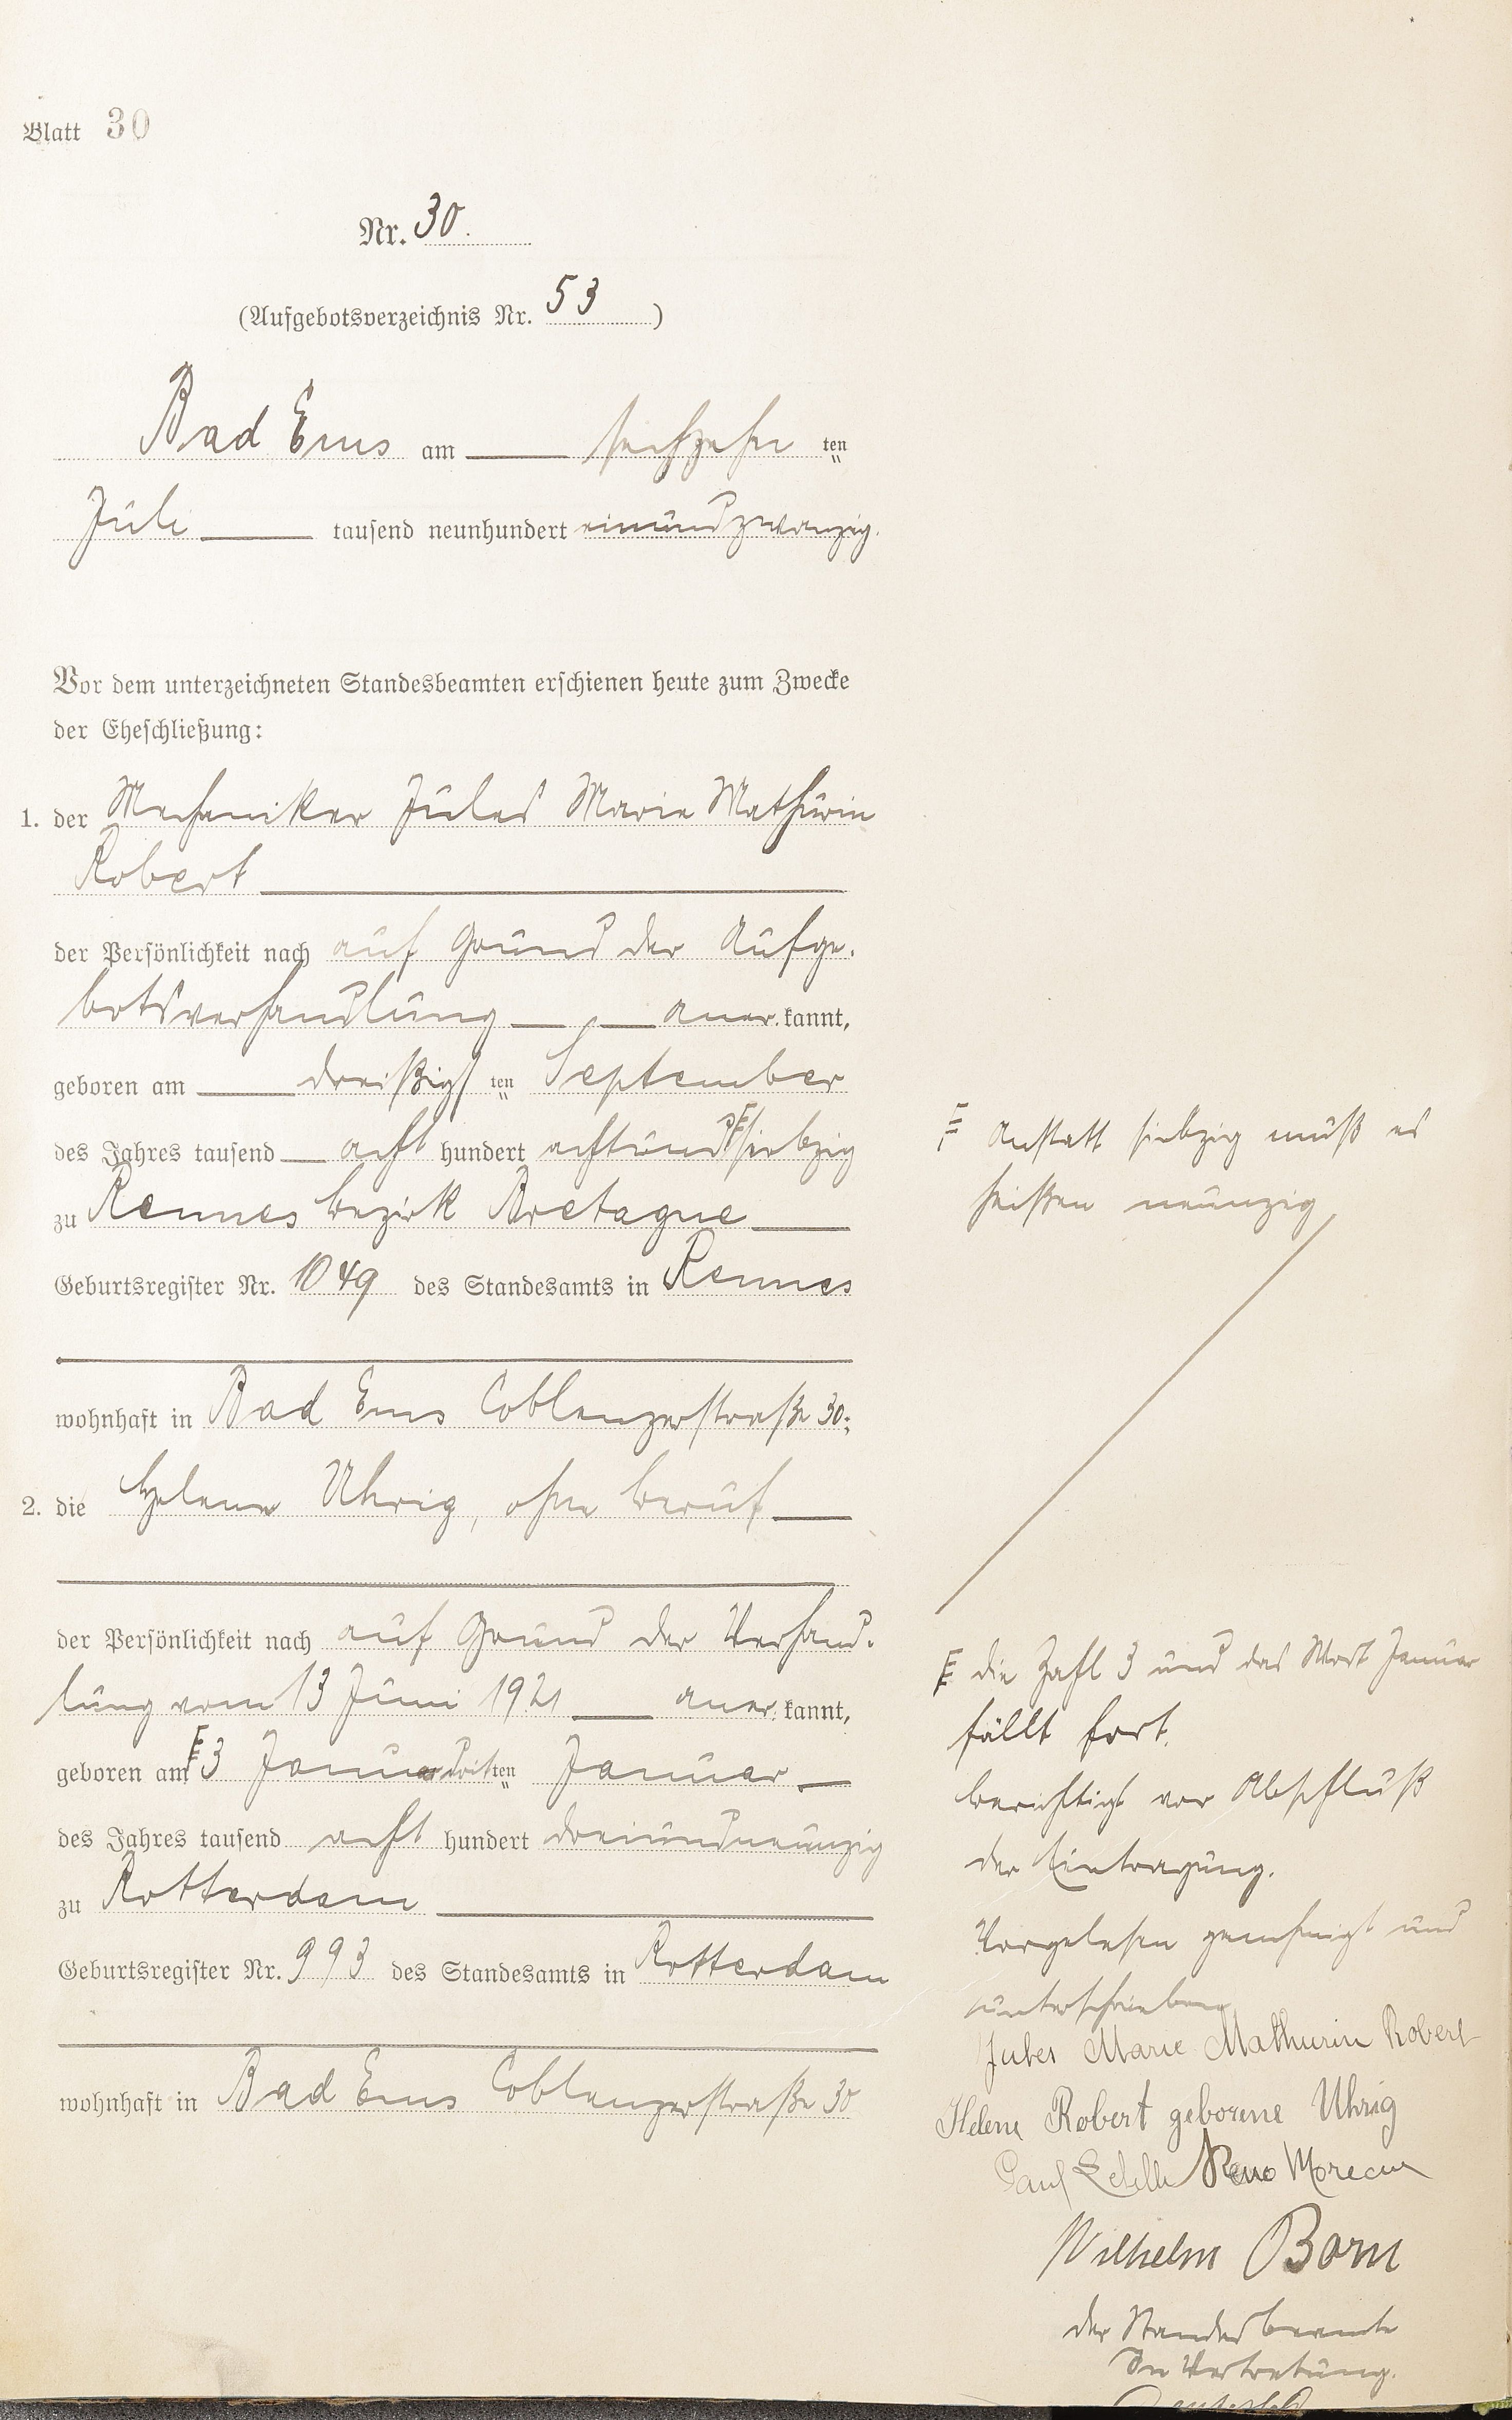 Blatt 30
Nr. 30.
(Aufgebotsverzeichnis Nr. 53)
Bad Ems am sechzehn ten
Juli tausend neunhundert einundzwanzig.
Vor dem unterzeichneten Standesbeamten erschienen heute zum Zwecke
der Eheschließung:
1. der Mechaniker Jules Marie Mathurin
Robert
der Persönlichkeit nach auf Grund der Aufge-
botsverhandlung aner kannt,
geboren am dreißigs ten September
des Jahres tausend acht hundert achtund siebzig
zu Rennes Bezirk Bretagne
Geburtsregister Nr. 1049 des Standesamts in Rennes
wohnhaft in Bad Ems Coblenzerstraße 30;
2. die Helene Uhrig, ohne Beruf
der Persönlichkeit nach auf Grund der Verhand-
lung vom 13 Juni 1921 aner kannt,
geboren am 3 Januar drit ten Januar
des Jahres tausend acht hundert dreiundneunzig
zu Rotterdam
Geburtsregister Nr. 993 des Standesamts in Rotterdam
wohnhaft in Bad Ems Coblenzerstraße 30
Anstatt siebzig muß es
heißen neunzig
die Zahl 3 und das Wort Januar
fällt fort.
berichtigt vor Abschluß
der Eintragung.
Vorgelesen genehmigt und
unterschrieben
Jules Marie Mathurin Robert
Helene Robert geborene Uhrig
Paul
Wilhelm Born
der Standesbeamte
In Vertretung.